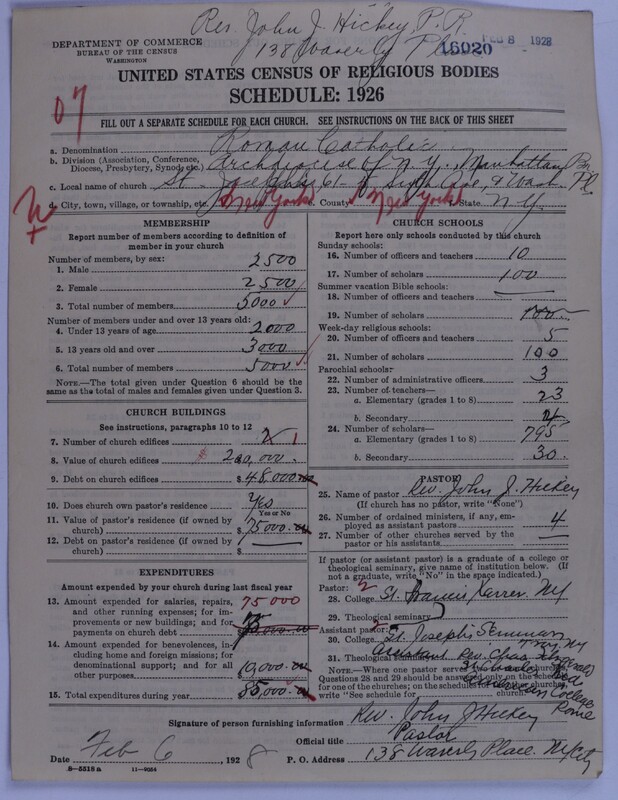 Rev. John J. Hickey P.R.
138 Waverly Pl
16020
FEB 8 1928
DEPARTMENT OF COMMERCE
BUREAU OF THE CENSUS
WASHINGTON
UNITED STATES CENSUS OF RELIGIOUS BODIES
SCHEDULE: 1926
07
FILL OUT A SEPARATE SCHEDULE FOR EACH CHURCH. SEE INSTRUCTIONS ON THE BACK OF THIS SHEET
a. Denomination Roman Catholic
b. Division (Association, Conference, Diocese, Presbytery, Synod, etc.) Archdiocese of N.Y. Manhattan
c. Local name of church St. Joseph's 6th Ave, & Wash. Pl.
d. City, town, village, or township, etc. New York e. County New York f. State N.Y.
MEMBERSHIP
Report number of members according to definition of
member in your church
Number of members, by sex:
1. Male 2500
2. Female 2500
3. Total number of members 5000
Number of members under and over 13 years old:
4. Under 13 years of age 2000
5. 13 years old and over 3000
6. Total number of members 5000
NOTE.—The total given under Question 6 should be the
same as the total of males and females given under Question 3.
CHURCH BUILDINGS
See instructions, paragraphs 10 to 12
7. Number of church edifices 2 1
8. Value of church edifices $ 200,000.
9. Debt on church edifices $ 48,000.00
10. Does church own pastor's residence Yes
Yes or No
11. Value of pastor's residence (if owned by
church) $ 75000.00
12. Debt on pastor's residence (if owned by
church) $
EXPENDITURES
Amount expended by your church during last fiscal year
13. Amount expended for salaries, repairs, 75000
and other running expenses; for im-
provements or new buildings; and for
payments on church debt $
14. Amount expended for benevolences, in-
cluding home and foreign missions; for
denominational support; and for all
other purposes $ 10,000.00
15. Total expenditures during year $ 85,000.00
CHURCH SCHOOLS
Report here only schools conducted by this church
Sunday schools:
16. Number of officers and teachers 10
17. Number of scholars 100
Summer vacation Bible schools:
18. Number of officers and teachers
19. Number of scholars 100
Week-day religious schools:
20. Number of officers and teachers 5
21. Number of scholars 100
Parochial schools:
22. Number of administrative officers 3
23. Number of teachers—
a. Elementary (grades 1 to 8) 23
b. Secondary
24. Number of scholars—
a. Elementary (grades 1 to 8) 795
b. Secondary 30.
PASTOR
25. Name of pastor Rev. John J. Hickey
(If church has no pastor, write "None")
26. Number of ordained ministers, if any, em-
ployed as assistant pastors 4
27. Number of other churches served by the
pastor or his assistants
If pastor (or assistant pastor) is a graduate of a college or
theological seminary, give name of institution below. (If
not a graduate, write "No" in the space indicated.)
Pastor: 2
28. College St. Francis Xavier. N.Y.
29. Theological seminary
Assistant pastor:
30. College St. Joseph's Seminary Troy, N.Y.
31. Theological seminary Assistant Rev. Chas.
American College
Rome
NOTE.—Where one pastor serves churches,
Questions 28 and 29 should be answered only on the schedule
for one of the churches; on the schedule
write "See schedule for church."
Signature of person furnishing information Rev. John J. Hickey
Official title Pastor
Date Feb 6, 1928 P. O. Address 138 Waverly Place. NY City
8—5518 a 11—9054